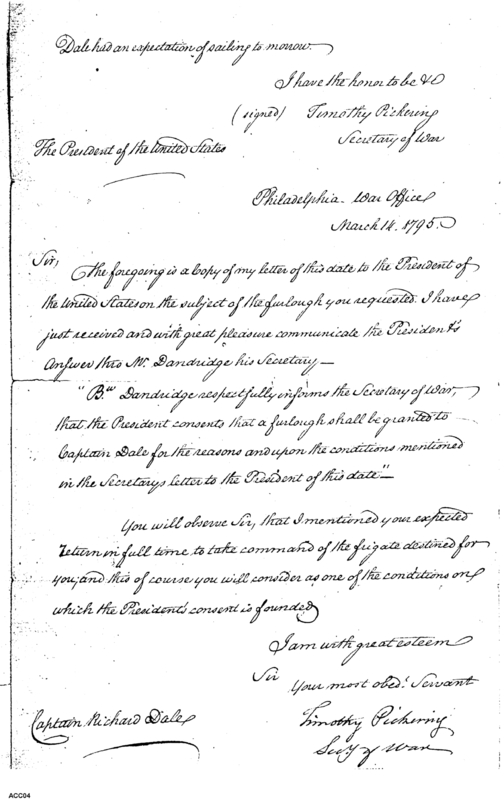 Dale had an expectation of sailing to morrow.
I have the honor to be &c
(signed) Timothy Pickering
Secretary of War
The President of the United States
Philadelphia War Office
March 14. 1795.
Sir,
The foregoing is a Copy of my letter of this date to the President of
the United States on the subject of the furlough you requested. I have
just received and with great pleasure communicate the President's
Answer thro Mr. Dandridge his Secretary—
"B.w Dandridge respectfully informs the Secretary of War,
that the President consents that a furlough shall be granted to
Captain Dale for the reasons and upon the conditions mentioned
in the Secretarys letter to the President of this date"—
You will observe Sir, that I mentioned your expected
return in full time to take command of the frigate destined for
you; and this of course you will consider as one of the conditions on
which the President's consent is founded
I am with great esteem
Sir
Your most obed.t Servant
Timothy Pickering
Secy of War
Captain Richard Dale
ACC04